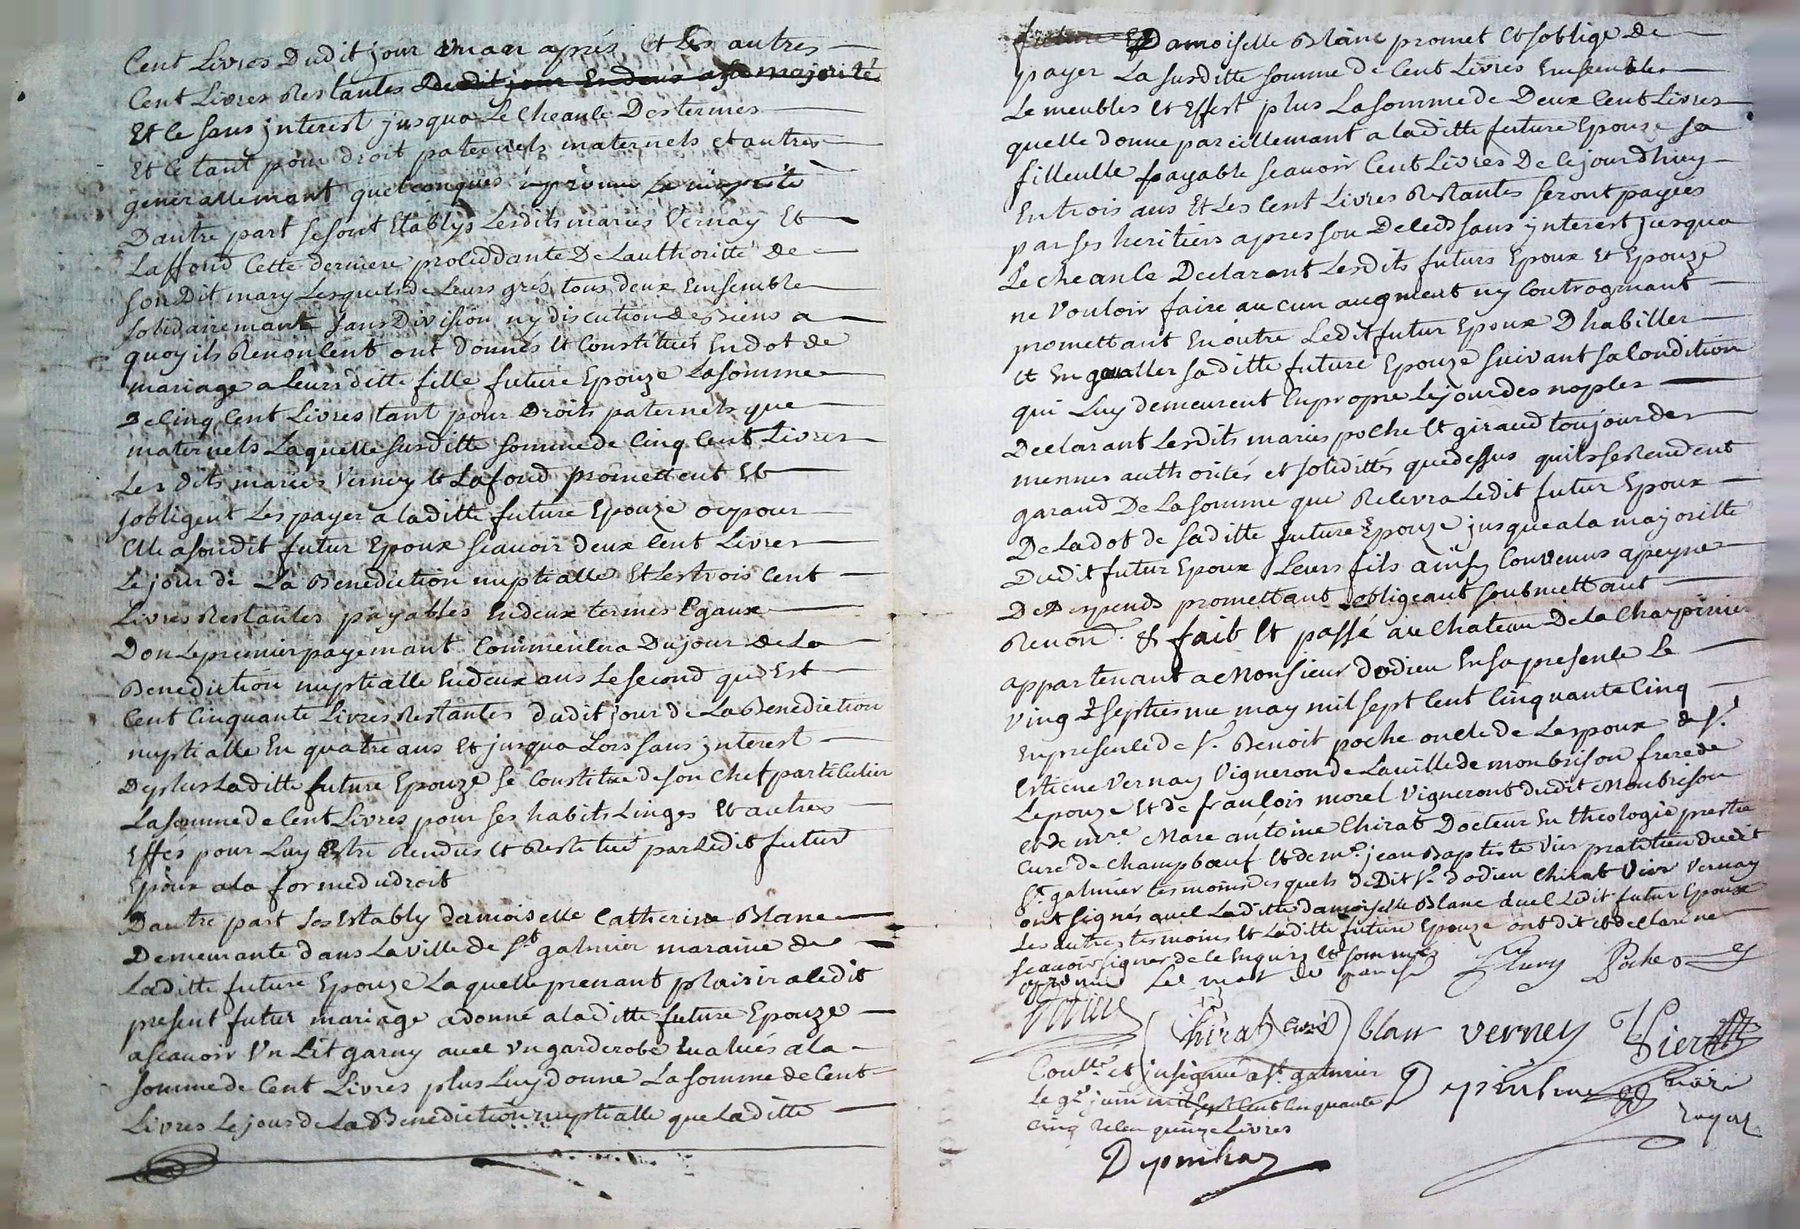 Cent Livres Dudit jour en un an aprés Et Les autres
Cent Livres Restantes Dudit jour En deux a sa majorité
Et Ce sans jnterest jusqua Le Cheanse Des termes
Et Ce tant pour droit paternels maternels et autres
generallemant quelconques
Dautre part se sont Etablys Lesdits mariés Vernay Et
Laffond Cette derniere proceddante De Lauthoritté de
son Dit mary Lesquels de Leurs grés tous deux Ensemble
solidairemant sans Division ny discution de Biens a
quoy ils Renoncent ont donnés Et Constitués En dot de
mariage a leurs ditte fille future Epouze La somme
De Cinq Cent Livres tant pour Droits paternels que
maternels Laquelle susditte somme de Cinq Cent Livres
Les dits mariés Verney Et Lafond promettent Et
sobligent Les payer a laditte future Epouze ou pour
Elle a son dit futur Epoux scavoir deux Cent Livres
Le jour de La Benediction nuptialle Et Les trois Cent
Livres Restantes payables En deux termes Egaux
Don Le premier payemant Commencera Du jour de La
Benediction nuptialle En deux ans Le second qui Est
Cent Cinquante Livres Restantes dudit jour de La Benediction
nuptialle En quatre ans Et jusqua Lors sans jnterest
De plus Laditte future Epouze se Constitue de son Chef particulier
La somme de Cent Livres pour ses habits Linges Et autres
Effes pour Luy Estre Rendus Et Restitué par Ledit futur
Epoux a la forme du droit
Dautre part ses Estably demoiselle Catherine Blanc
Demeurante dans La ville de St galmier maraine de
Laditte future Epouze Laquelle prenant plaisir aledit
present futur mariage a donné a laditte future Epouze
a scavoir Un Lit garny avec Un garderobe Evalués a la
somme de Cent Livres plus Luy donne La somme de Cent
Livres Le jour de La Benediction nuptialle que Laditte
Damoiselle Blanc promet Et soblige de
payer La susditte somme de Cent Livres Ensemble
Le meubles Et Effest plus La somme de Deux Cent Livres
quelle donne pareillemant a laditte future Epouze sa
filleulle payable scavoir Cent Livres De Cejourdhuy
En trois ans Et Les Cent Livres Restantes seront payées
par ses heritiers apres son Deceds sans jnterest jusqua
Le cheance Declarant Lesdits futurs Epoux Et Epouze
ne Vouloir faire aucun augment ny Controgmant
promettant En outre Ledit futur Epoux Dhabiller
Et En gualler saditte future Epouze suivant sa Condition
qui Luy demeurent En propre Le jour des nopces
Declarant Lesdits mariés poche Et giraud toujour des
mesmes authorités et solidittés que dessus quils se Rendent
garand De La somme que Recevra Ledit futur Epoux
De La dot de saditte future Epouze jusque a la majoritte
Dudit futur Epoux Leurs fils ainsy Convenus a peyne
De Despends promettant obligeant soubmettant
Renond. & fait Et passé au Chateau De La Charpinier
appartenant a Monsieur dodieu En sa presence Le
Ving & septiesme may mil sept Cent Cinquante Cinq
En presence de sr. Benoit poche oncle de Lepoux de sr.
Estiene Vernay Vigneron de La ville de monbrison frere de
Lepouze Et de francois morel Vigneront dudit Monbrison
et de mre. Marc antoine Chirat Docteur En theologie prestre
Curé de Champbœuf Et de mr. jean Baptiste Vier pratitien dudit
St. galmier tesmoins desquels Ledit sr. dodieu Chirat Vier Vernay
ont signés avec Laditte damoiselle Blanc avec Ledit futur Epoux
Les autres tesmoins Et Laditte future Epouze ont dit et declaré ne
scavoir signer de ce Enquis Et sommés
approuvé Le mot de
fleury Poche
Chirat Curé blanc verney Vier
Coulle. et jnsignué a St. galmier
Le 9e juin mil sept cent Cinquante
Cinq Receu quinze Livres
Depinhac
nore
royal
Depinhac